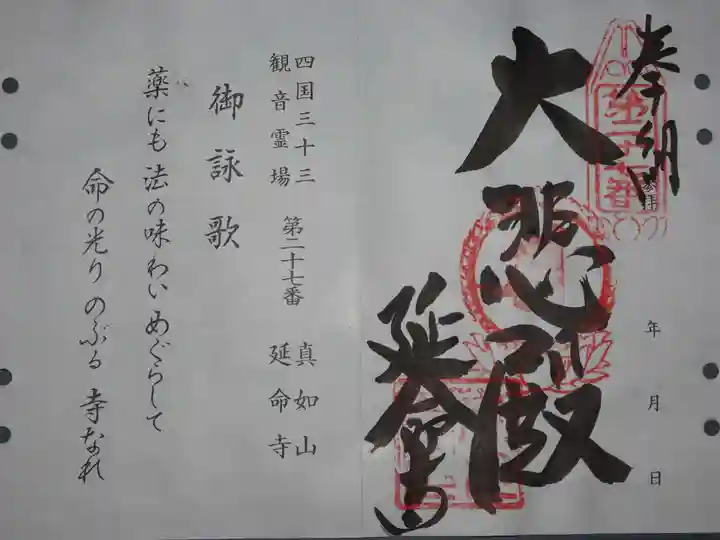 奉納
参拝
年 月 日
大悲殿
延命寺
四国三十三
観音霊場 第二十七番 真如山
延命寺
御詠歌
薬にも 法の味わい めぐらして
命の光り のぶる 寺なれ